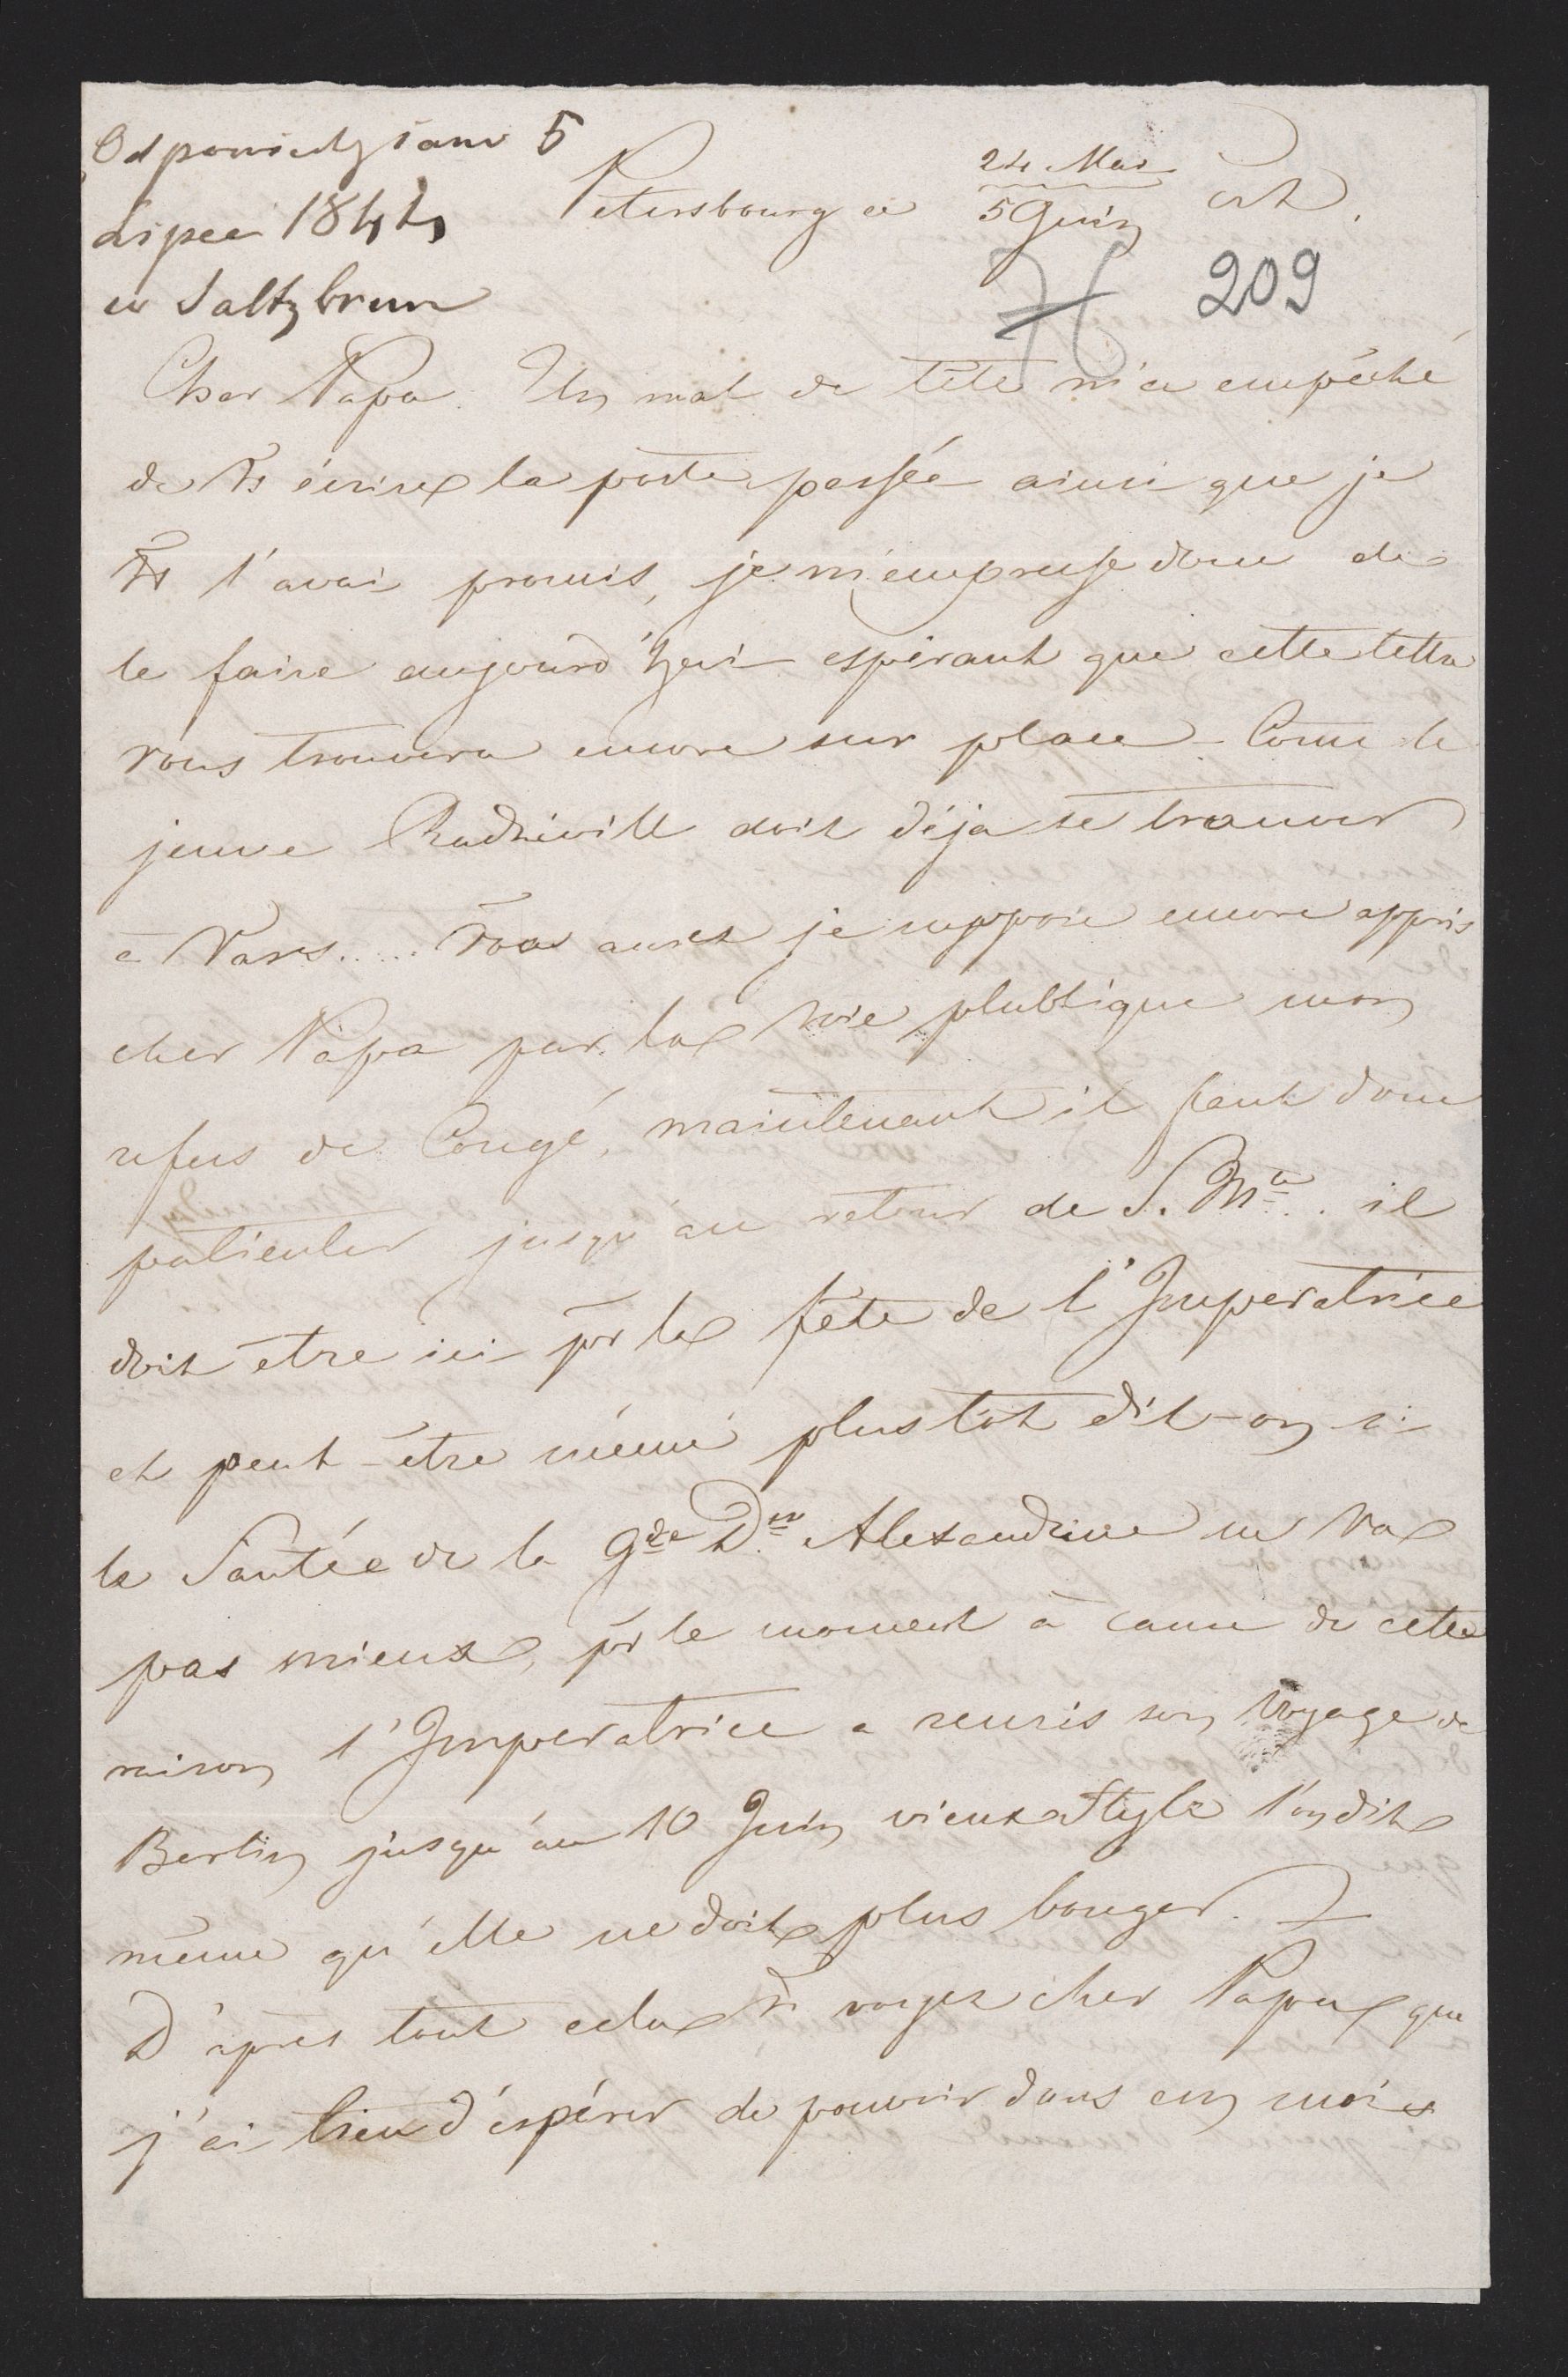 Odpowiedziano 5
Lipca 1844
w Saltzbrun
Petersbourg ce 24 Mai
5 Juin
76 209
Cher Papa. Un mal de tête m'a empêché
de Vs écrire la poste passée ainsi que je
Vs l'avai promis, je m'empresse donc de
le faire aujourd'hui espérant que cette lettre
vous trouvera encore sur place – Come le
jeune Radziwill doit déja se trouver
à Vars..... Vous aurez je suppose encore appris
cher Papa par la voie plublique mon
refus de Congé, maintenant il faut donc
patienter jusqu'au retour de S. M. il
doit etre ici pr la fête de l'Imperatrice
et peut-être même plus tôt dit-on si
la Santée de la gde Dsse Alexandrine ne va
pas mieux, pr le moment à cause de cette
raison l'Imperatrice a remis son voyage de
Berlin jusqu'au 10 Juin vieux Style l'on dit
même qu'elle ne doit plus bouger.
D'après tout cela Vs voyez cher Papa que
j'ai lieu d'espérer de pouvoir dans un mois